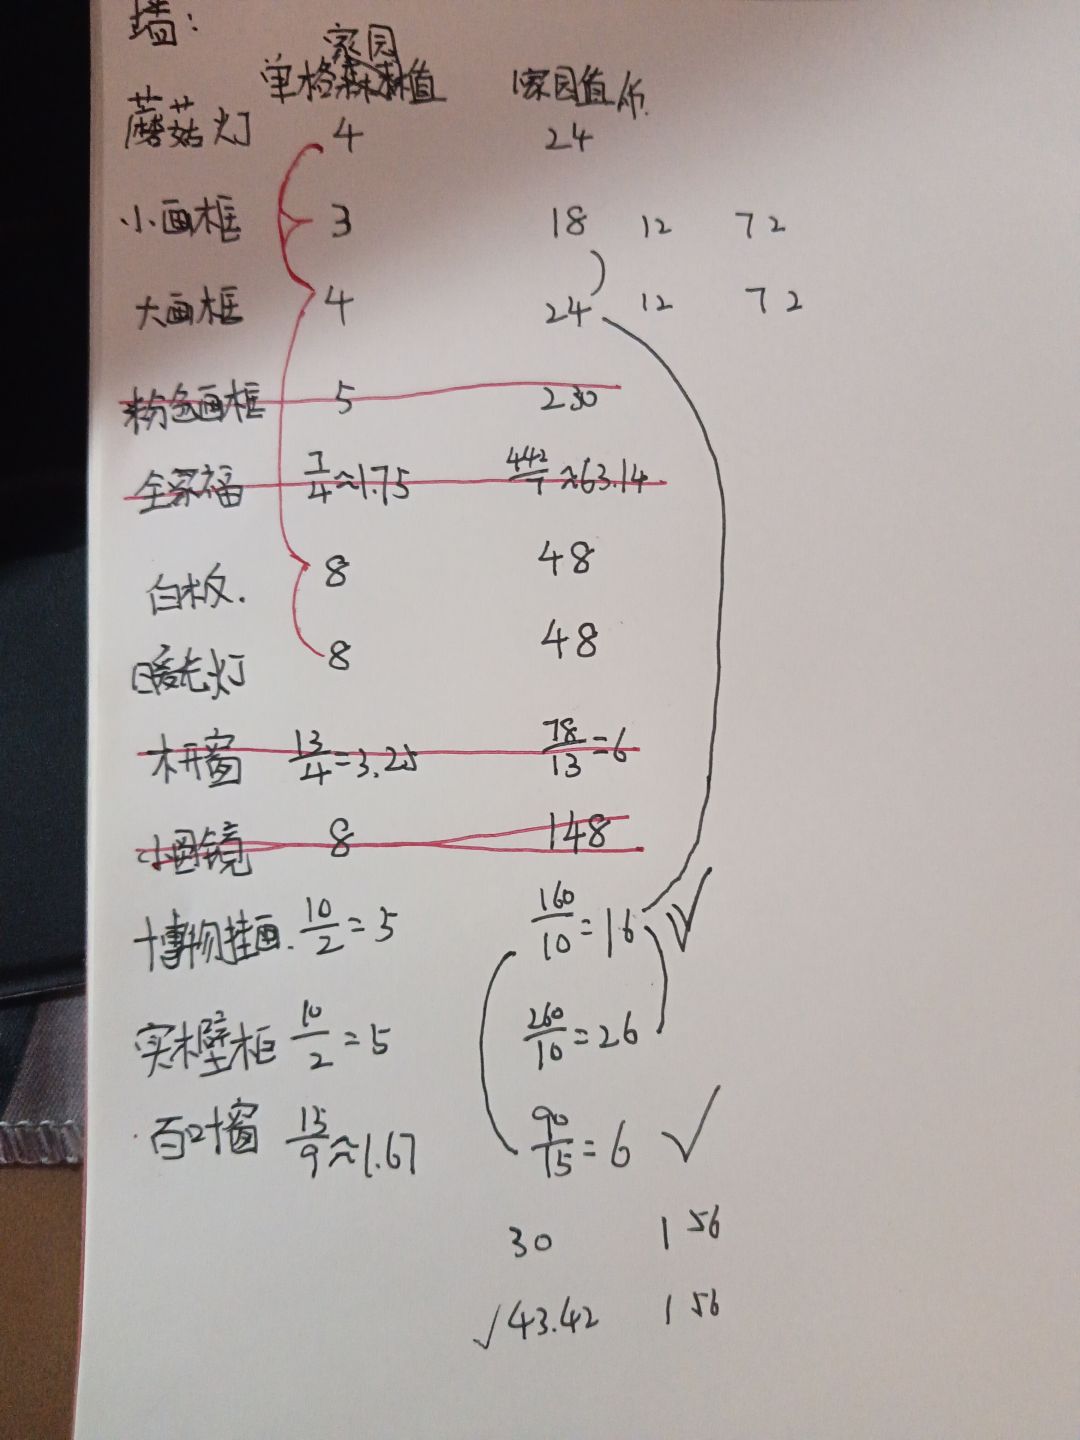 墙:
家园
单格森林值 1家园值/
蘑菇灯 4 24
小画框 3 18 12 72
大画框 4 24 12 72
粉色画框 5 230
全家福 7/4≈1.75 442/7≈63.14
白板. 8 48
暖光灯 8 48
木开窗 13/4=3.25 78/13=6
小圆镜 8 148
博物挂画. 10/2=5 160/10=16 √
实木壁柜 10/2=5 260/10=26
百叶窗 15/9≈1.67 90/15=6 √
30 156
√43.42 156